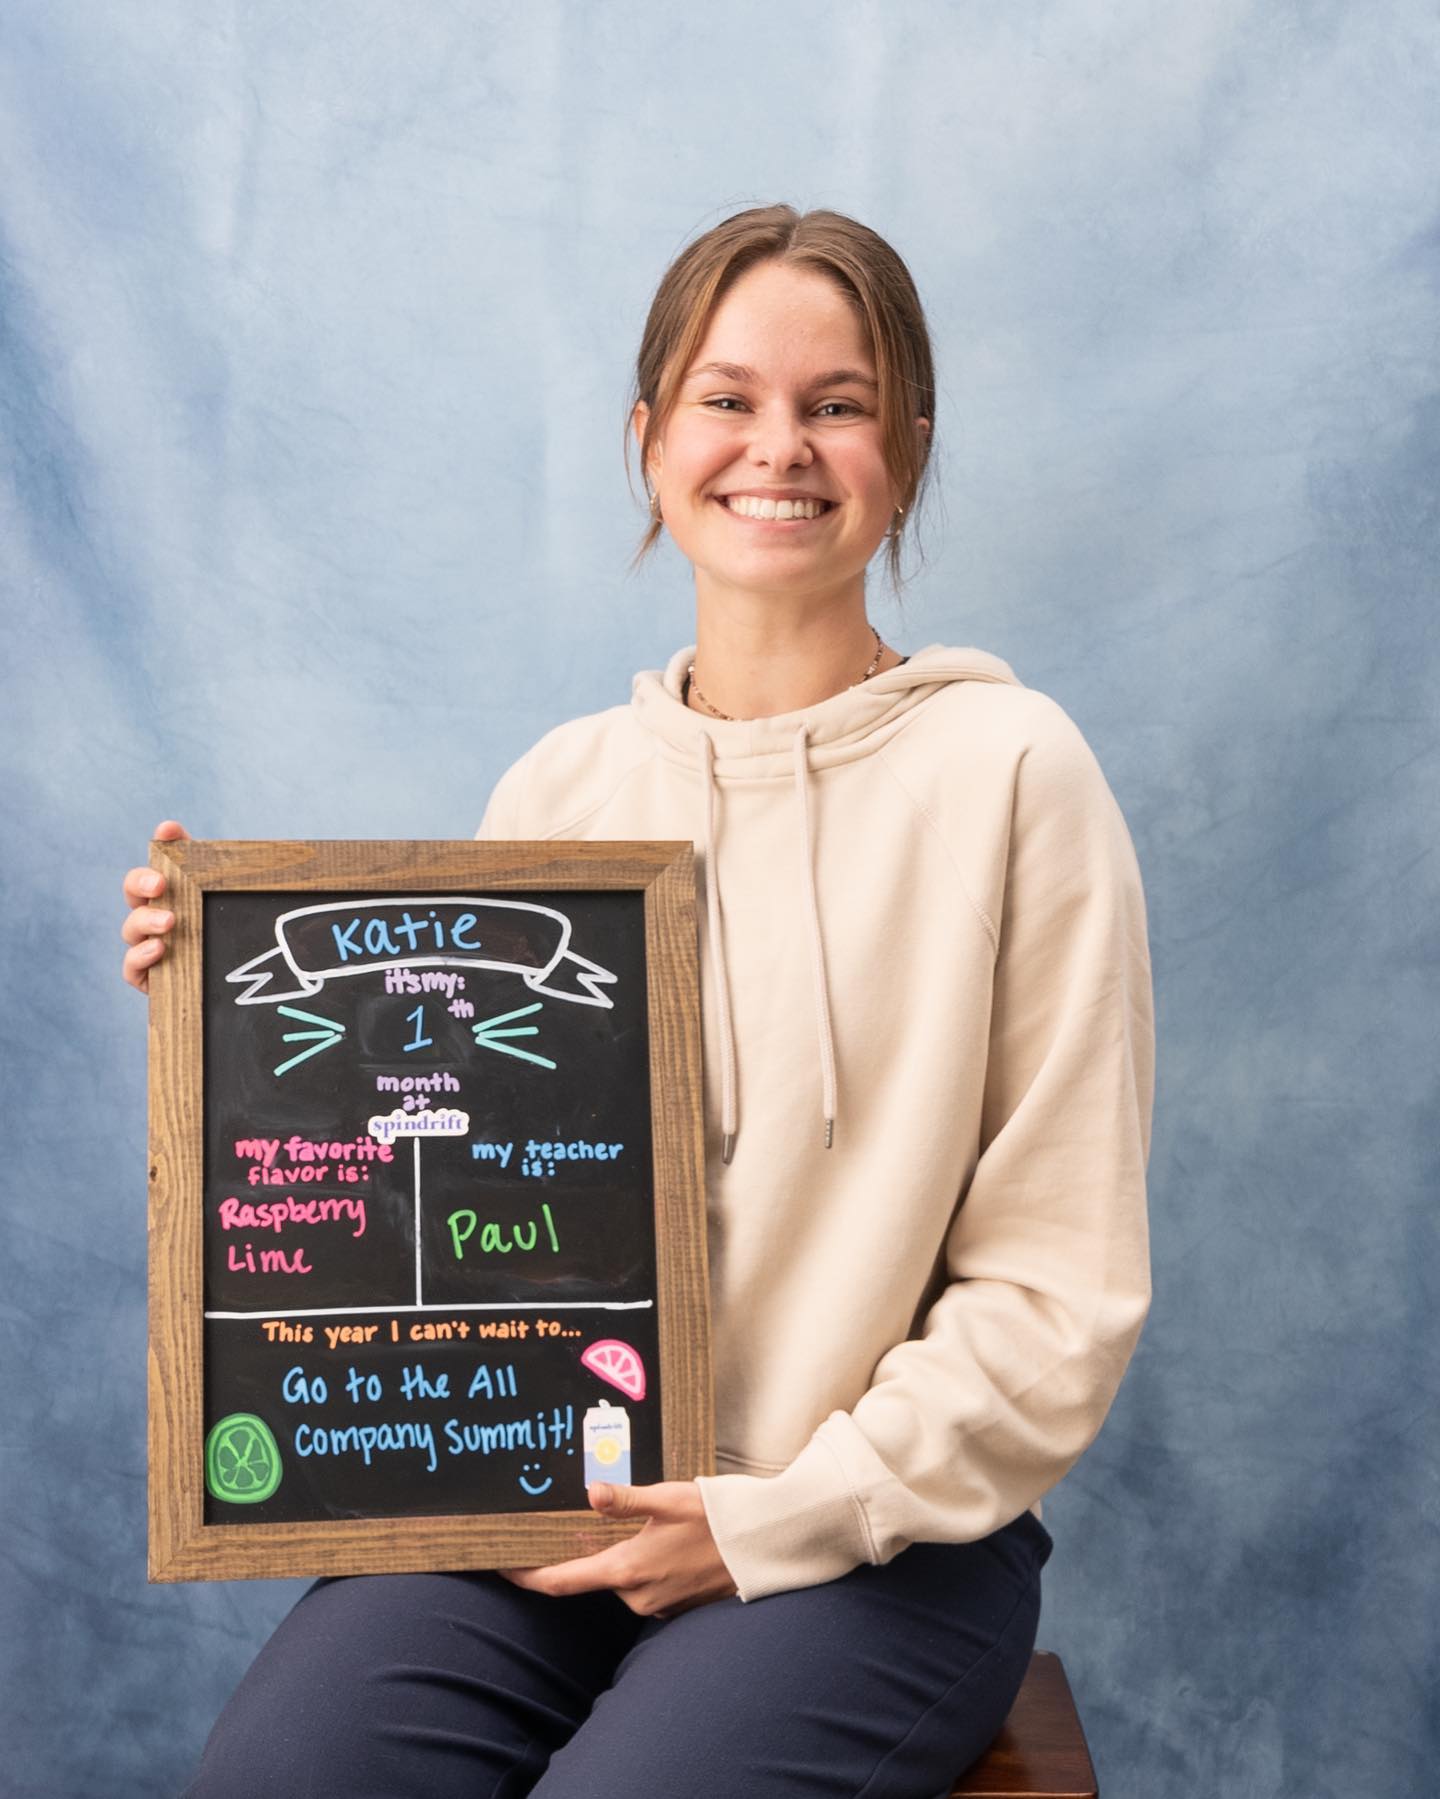 Katie
it's my:
1th
month
at
spindrift
my favorite
flavor is:
Raspberry
Lime
my teacher
is:
Paul
This year I can't wait to...
Go to the All
Company Summit!